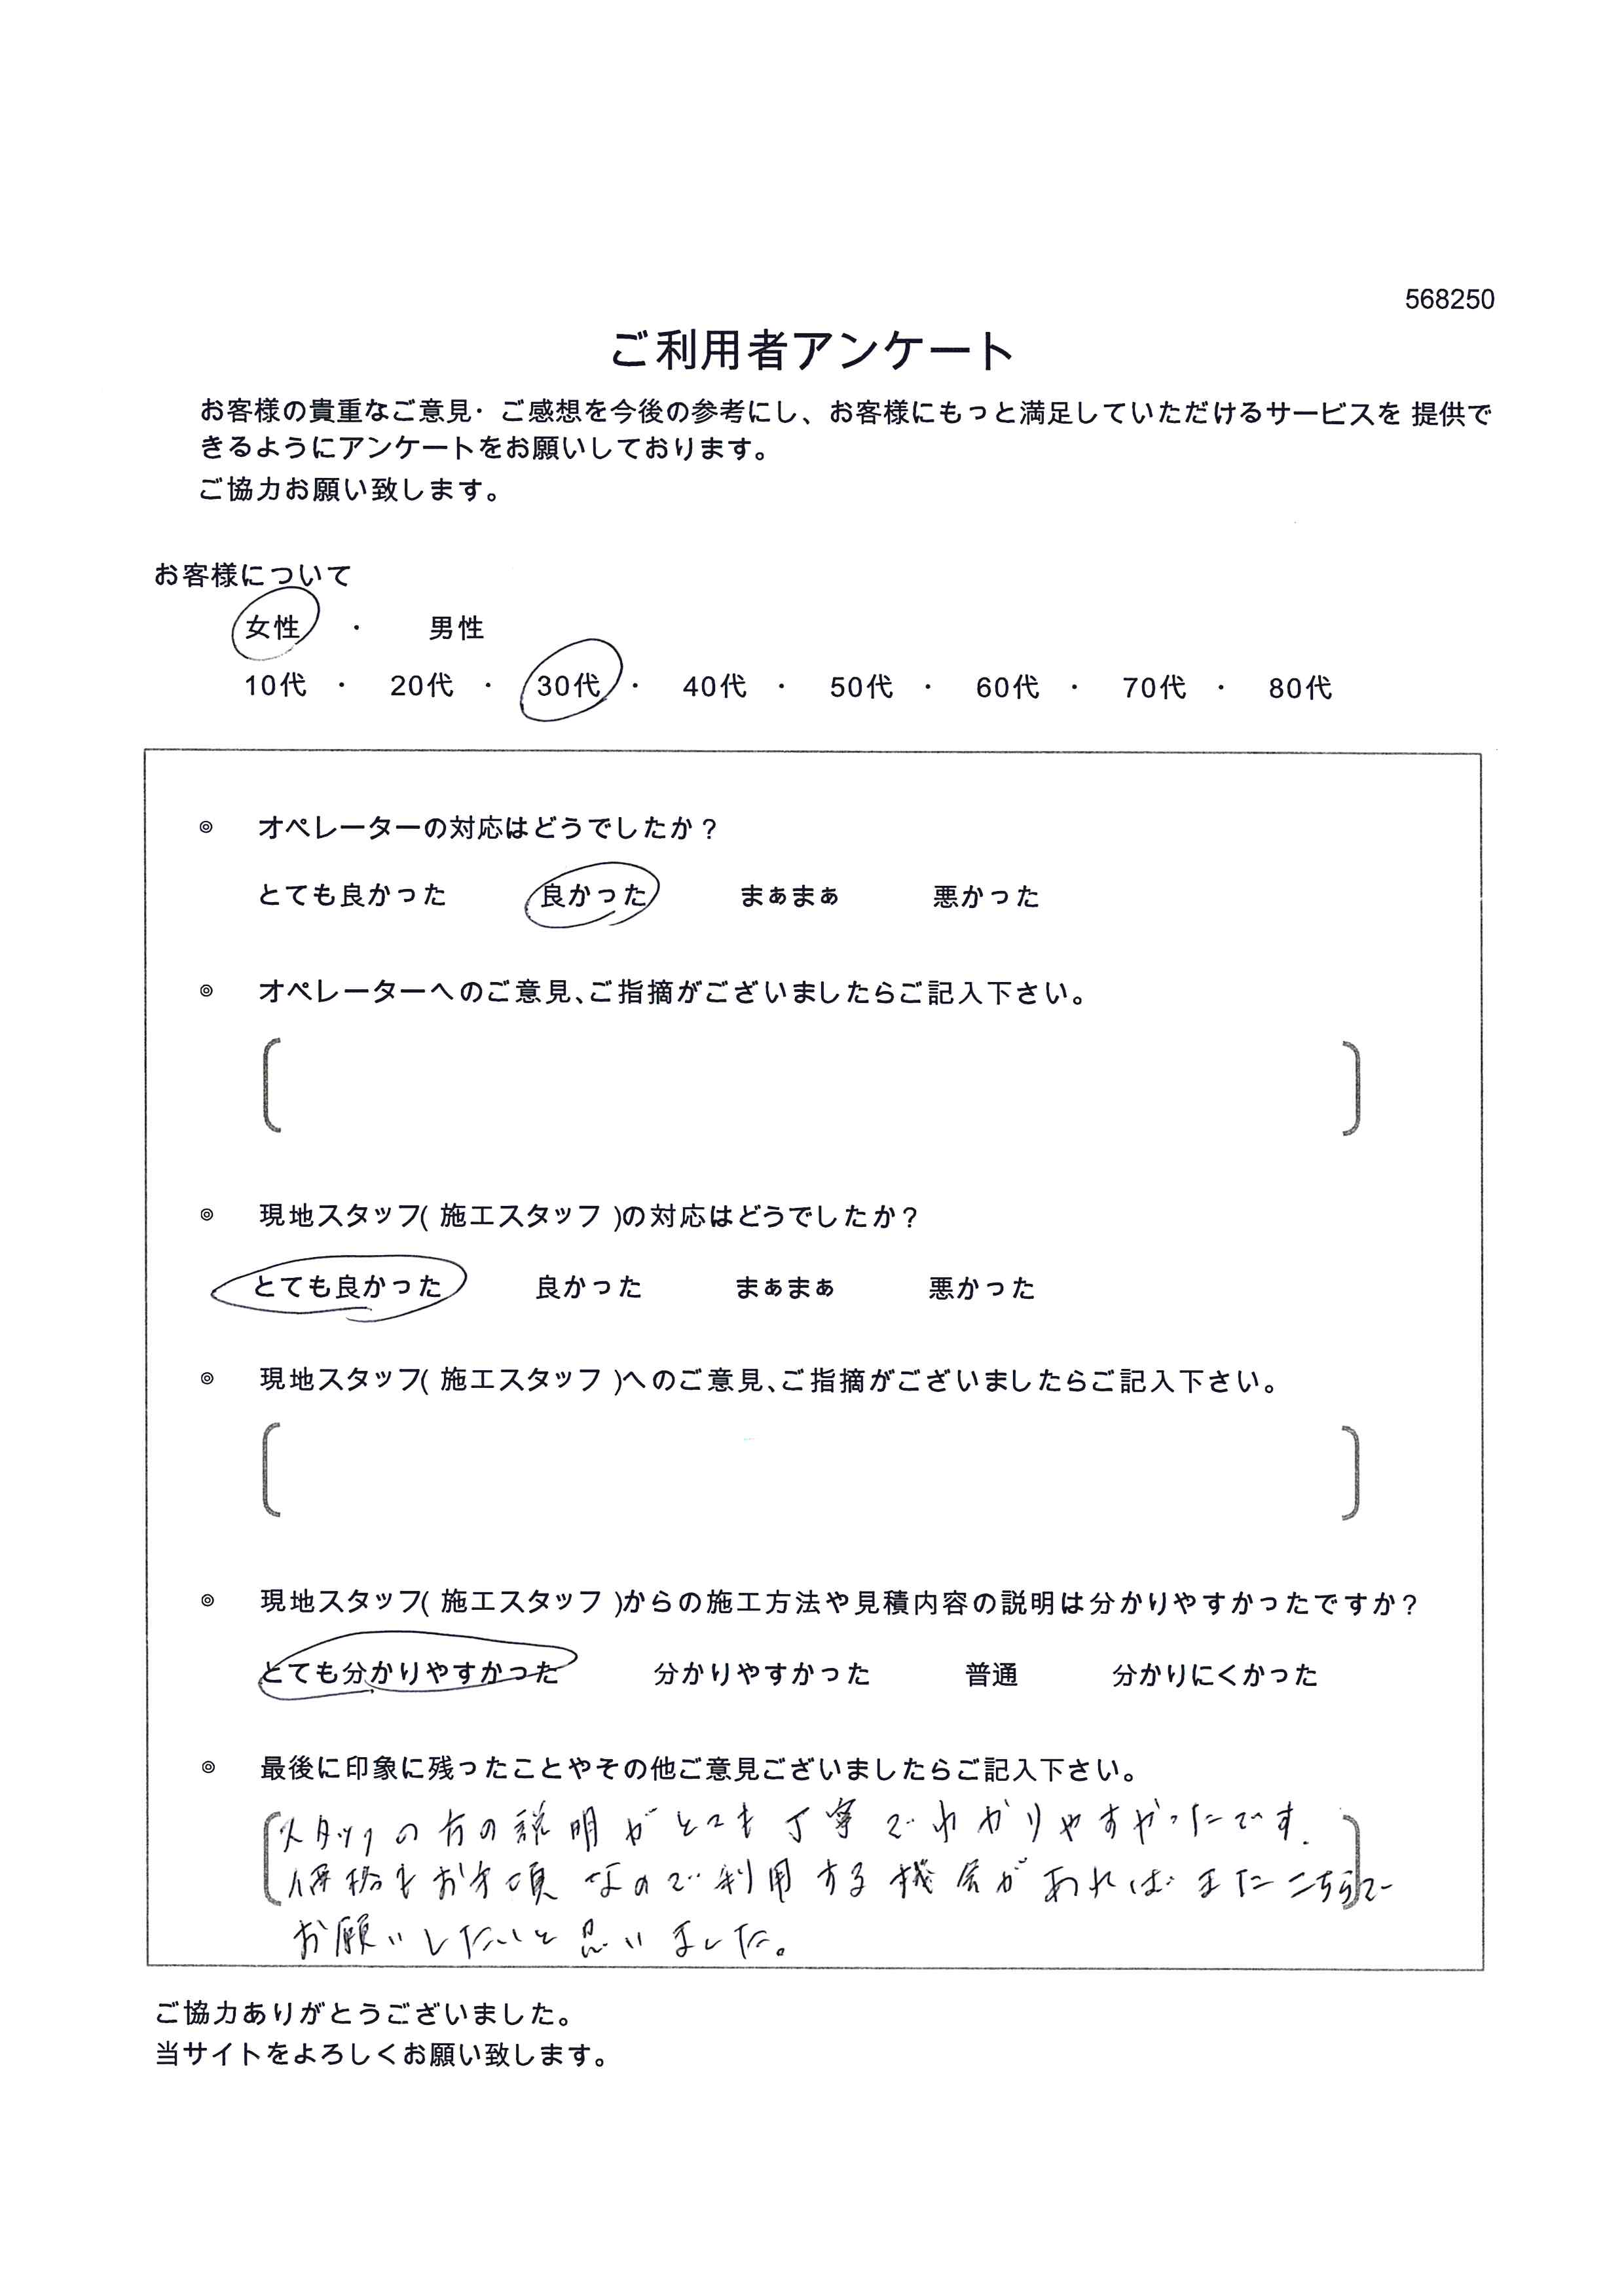 568250
ご利用者アンケート
お客様の貴重なご意見・ご感想を今後の参考にし、お客様にもっと満足していただけるサービスを 提供で
きるようにアンケートをお願いしております。
ご協力お願い致します。
お客様について
女性 ・ 男性
10代 ・ 20代 ・ 30代 ・ 40代 ・ 50代 ・ 60代 ・ 70代 ・ 80代
◎ オペレーターの対応はどうでしたか？
とても良かった 良かった まぁまぁ 悪かった
◎ オペレーターへのご意見、ご指摘がございましたらご記入下さい。
◎ 現地スタッフ( 施工スタッフ )の対応はどうでしたか？
とても良かった 良かった まぁまぁ 悪かった
◎ 現地スタッフ( 施工スタッフ )へのご意見、ご指摘がございましたらご記入下さい。
◎ 現地スタッフ( 施工スタッフ )からの施工方法や見積内容の説明は分かりやすかったですか？
とても分かりやすかった 分かりやすかった 普通 分かりにくかった
◎ 最後に印象に残ったことやその他ご意見ございましたらご記入下さい。
スタッフの方の説明がとても丁寧でわかりやすかったです.
価格もお手頃なので利用する機会があればまたこちらで
お願いしたいと思いました。
ご協力ありがとうございました。
当サイトをよろしくお願い致します。